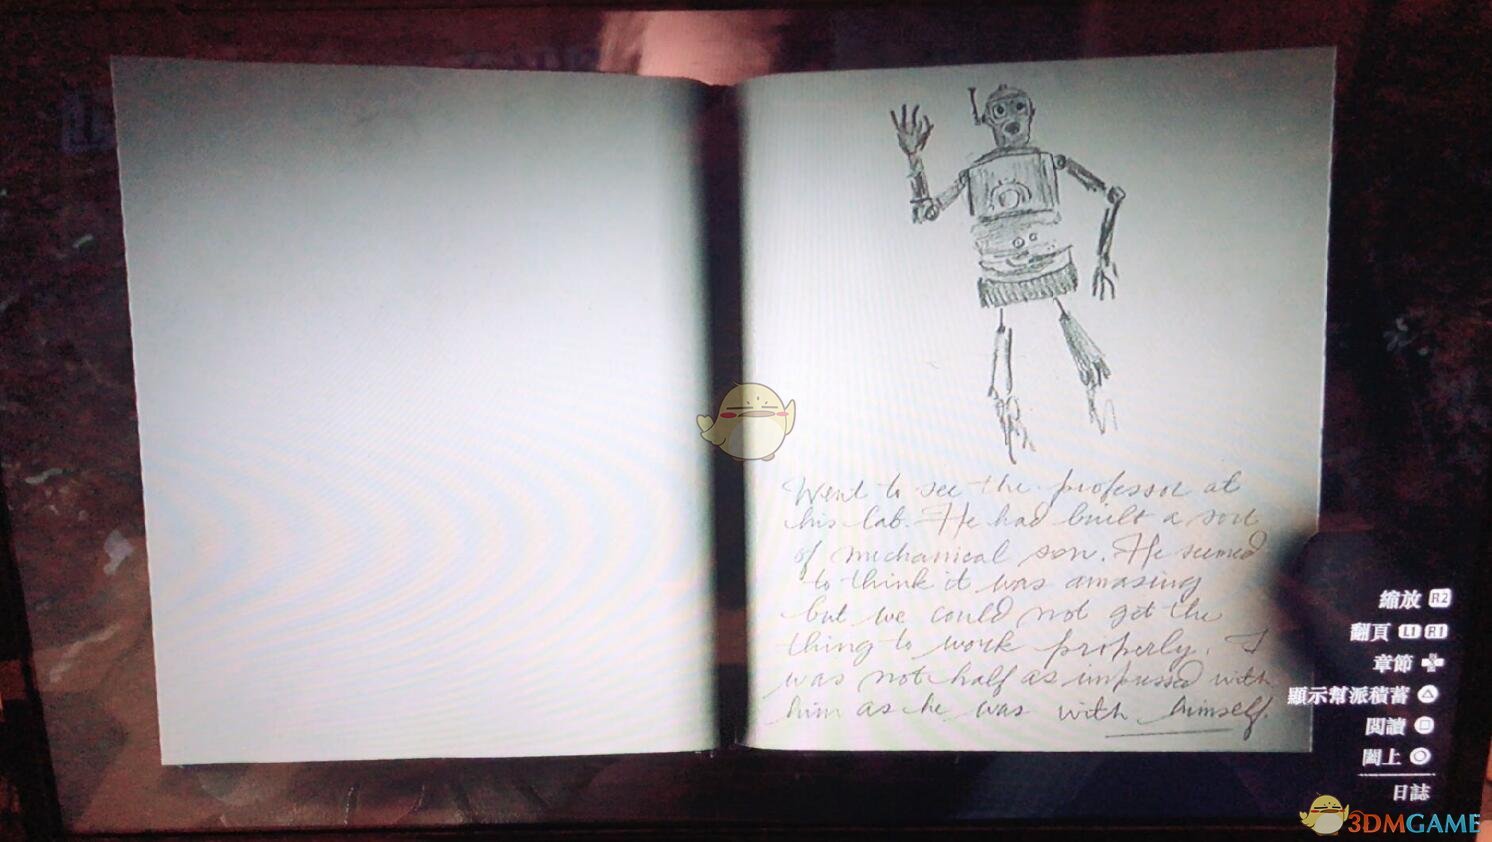 Went to see the professor at
his lab. He had built a sort
of mechanical son. He seemed
to think it was amazing
but we could not get the
thing to work properly. I
was not half as impressed with
him as he was with himself.
縮放 R2
翻頁 L1 R1
章節
顯示幫派積蓄
閱讀
闔上
日誌
3DMGAME